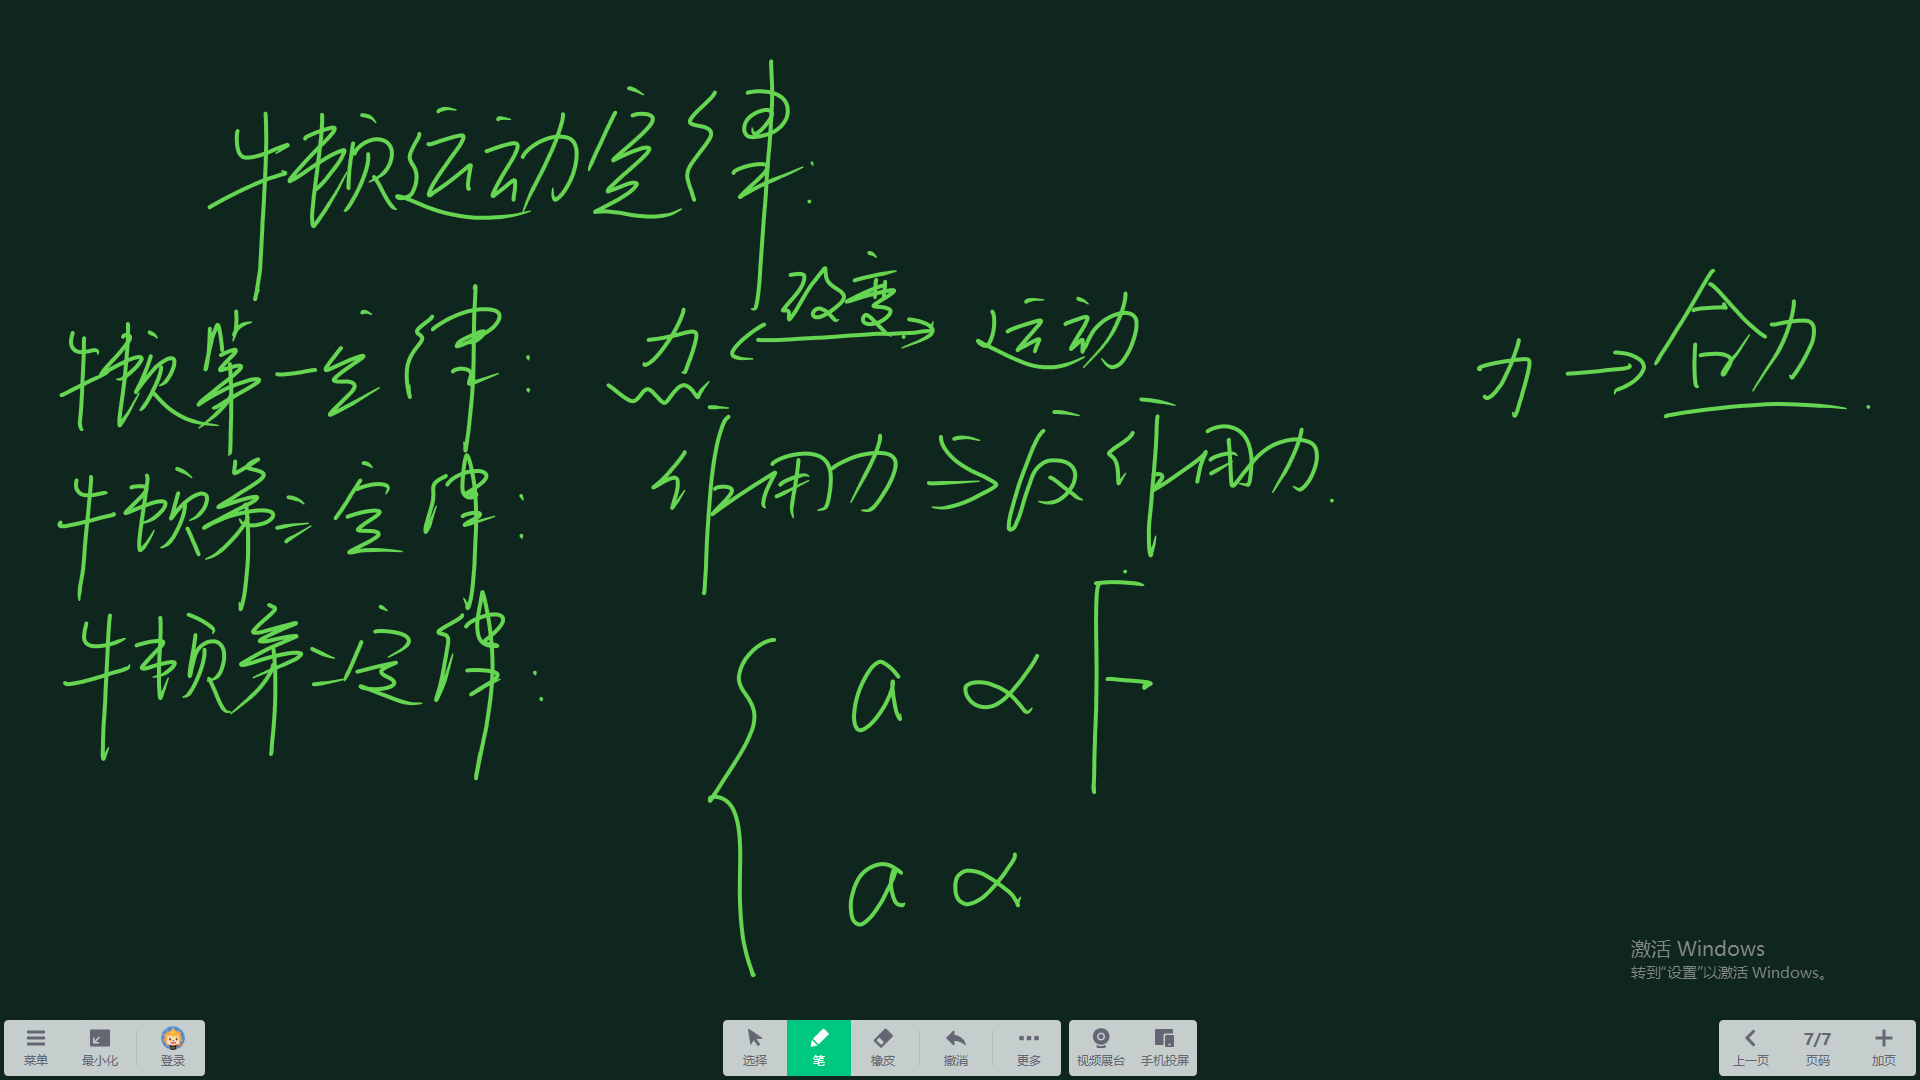 牛顿运动定律.
牛顿第一定律: 力 ←改变→ 运动 力 → 合力.
牛顿第三定律: 作用力与反作用力.
牛顿第二定律: a ∝ F
a ∝
激活 Windows
转到“设置”以激活 Windows。
菜单 最小化 登录 选择 笔 橡皮 撤消 更多 视频展台 手机投屏 上一页 7/7 页码 加页